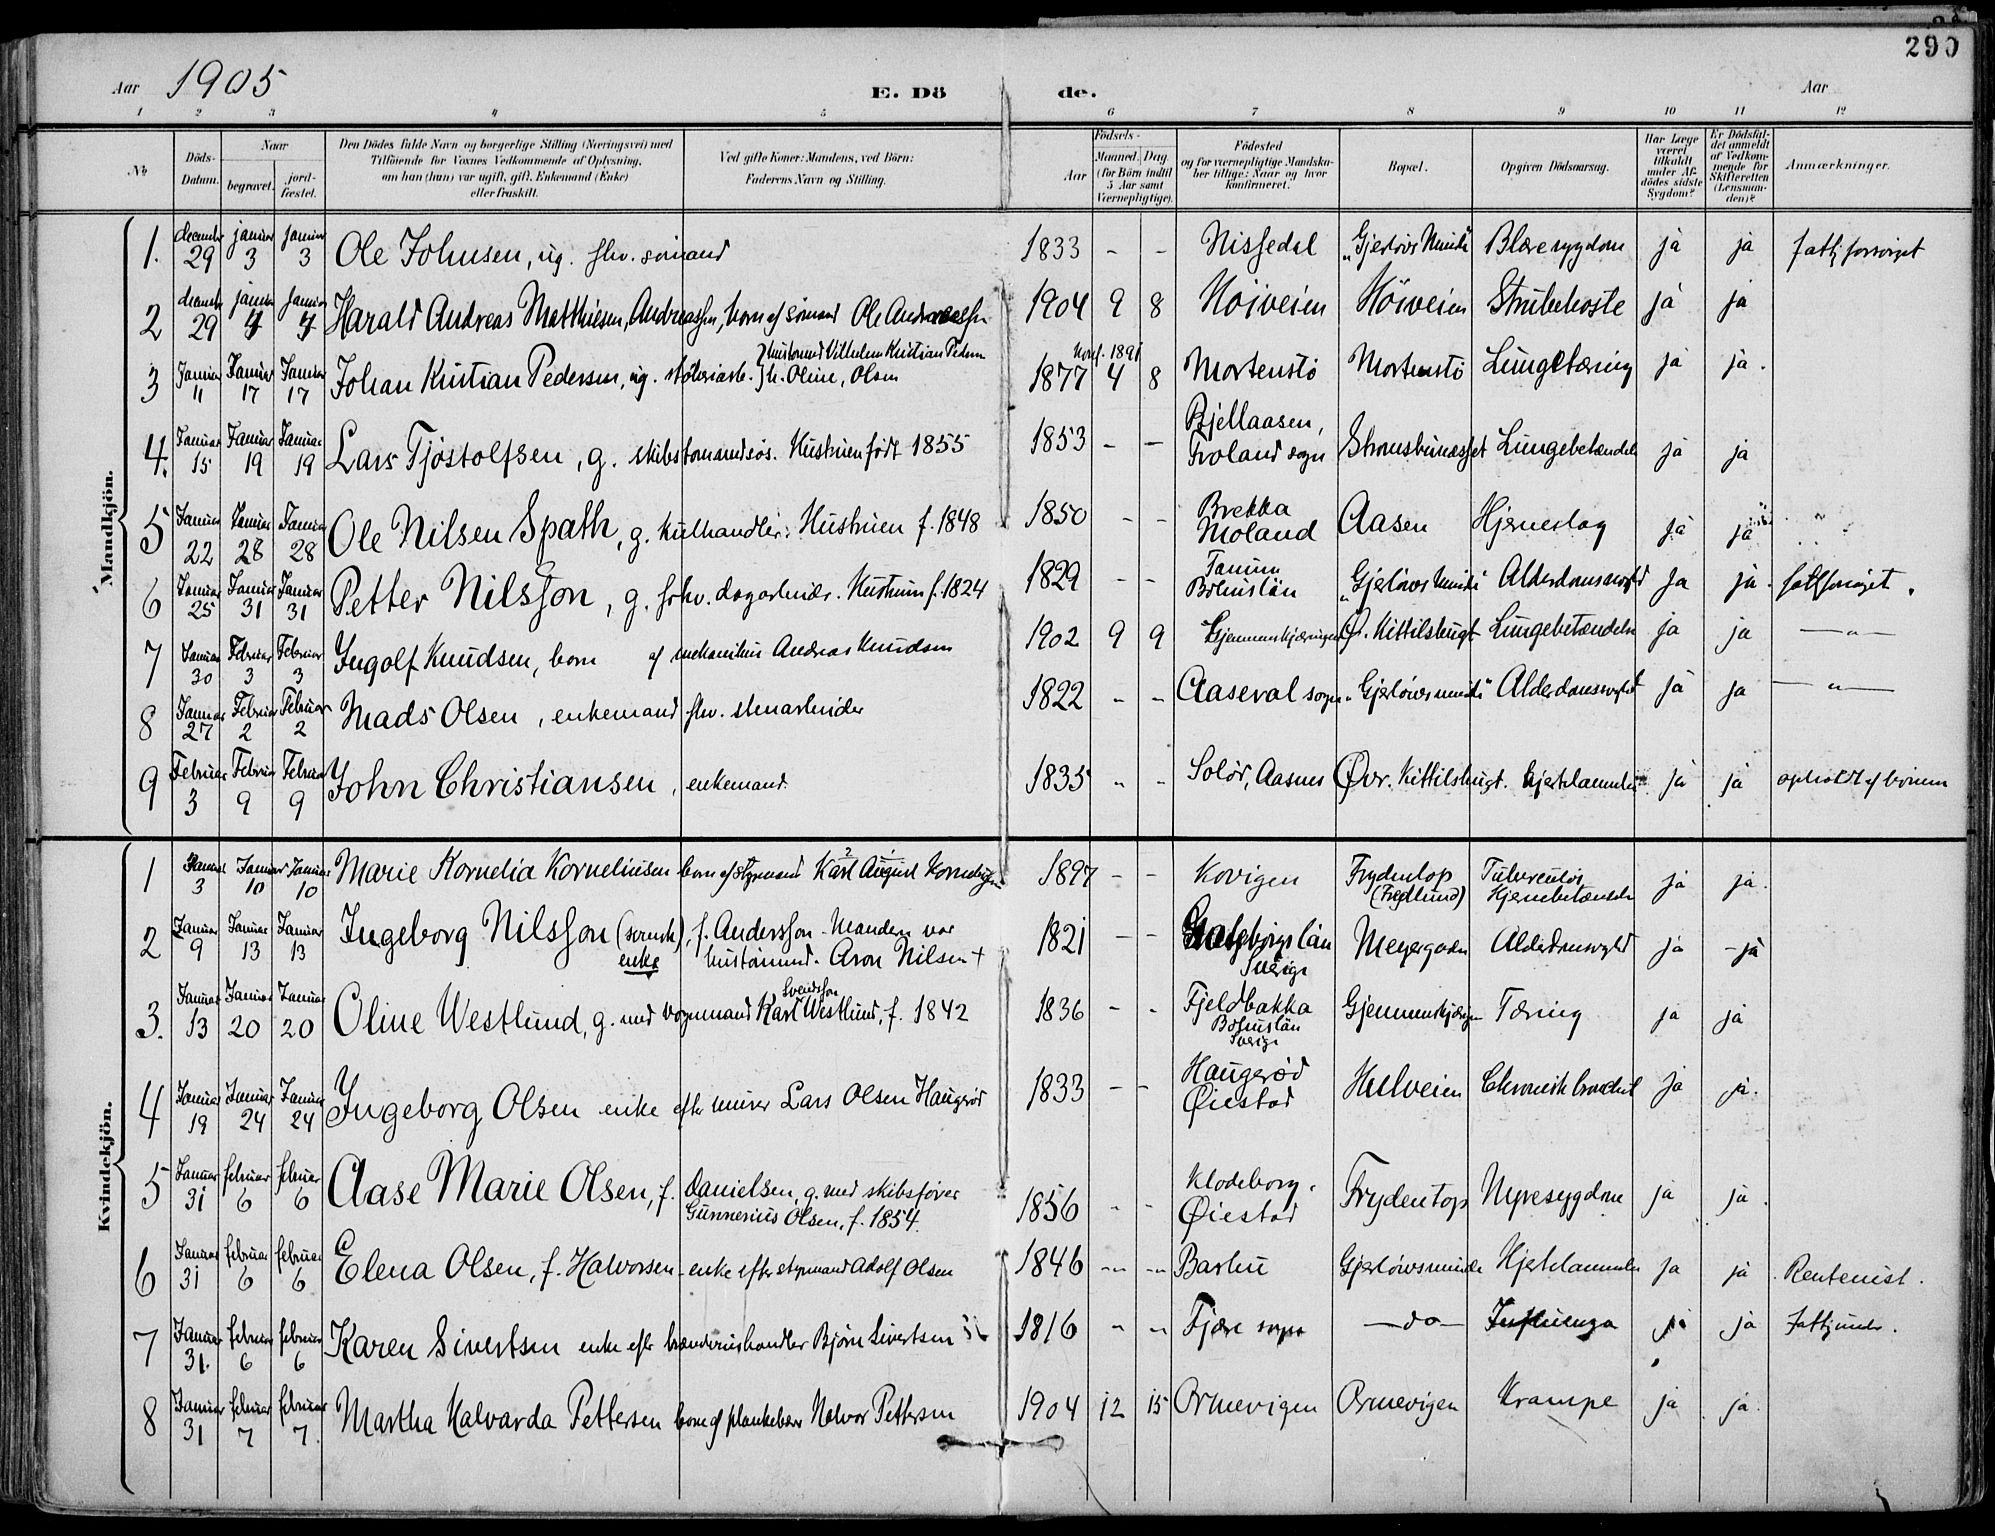 290
Aar 1905 E. Dö de. Aar
1 2 3 4 5 6 7 8 9 10 11 12
No Döds-Datum. Naar begravet. jord-fæstet. Den Dödes fulde Navn og borgerlige Stilling (Næringsvei) med Tilföiende for Voxnes Vedkommende af Oplysning, om han (hun) var ugift, gift, Enkemand (Enke) eller fraskilt. Ved gifte Koner: Mandens, ved Börn: Faderens Navn og Stilling. Födsels- Aar Maaned. Dag (for Börn indtil 5 Aar samt Værnepligtige). Födested og for værnepligtige Mandskaber tillige: Naar og hvor konfirmeret. Bopæl. Opgiven Dödsaarsag. Har Læge været tilkaldt under Afdödes sidste Sygdom? Er Dödsfaldet anmeldt af Vedkommende for Skifteretten (Lensmanden)? Anmærkninger.
Mandkjön.
1. december 29 januar 3 januar 3 Ole Johnsen, ug. fhv. sömand 1833 - - Nissedal "Gjerlövs Minde" Blæresygdom ja ja fattigforsörget
2 decembr 29 januar 4 Januar 4 Harald Andreas Matthiesen, Andreassen, barn af sömand Ole Andreassen 1904 9 8 Höiveien Höiveien Strubehoste ja ja
3 Januar 11 Januar 17 Januar 17 Johan Kristian Pedersen, ug. Vilhelm Kristian Pedersen h. Oline, Olsen konf. 1891 1877 4 8 Mortenstö Mortenstö Lungetæring ja ja.
4. Januar 15 Januar 19 Januar 19 Lars Tjöstolfsen, g. Hustruen født 1855 1853 - - Bjellaasen, Froland sogn Strömsbunæsset Lungebetændelse ja ja
5 Januar 22 Januar 28 Januar 28 Ole Nilsen Spath, g. kulhandler. Hustruen f. 1848 1850 - - Brekka Moland Aasen Hjerneslag ja ja
6 Januar 25 Januar 31 Januar 31 Petter Nilsson, g. forhv. dagarbeider. Hustruen f. 1824 1829 - - Tanum Bohuslän "Gjerlövs Minde" Alderdomssvaghed ja ja. fattforsörget.
7 Januar 30 Februar 3 Februar 3 Ingolf Knudsen, barn af mekanikus Andreas Knudsen 1902 9 9 Gjennemskjæringen Ö. Kittilsbugt Lungebetændelse ja ja — " —
8 Januar 27 Februar 2 Februar 2 Mads Olsen, enkemand fhv. stenarbeider 1822 - - Aaseral sogn "Gjerlövs minde" Alderdomssvaghed ja ja — " —
9 Februar 3 Februar 9 Februar 9 John Christiansen, enkemand. 1835 - - Solör, Aasnes Övr. Kittilsbugt. Hjertelammelse ja ja opholdt af börnene
Kvindekjön.
1 Januar 3 Januar 10 Januar 10 Marie Kornelia Korneliusen barn af styrmand Karl August Korneliusen 1897 - - Kovigen Frydentop (Fredlund) Tuberculös Hjernebetændelse ja ja.
2 Januar 9 Januar 13 Januar 13 Ingeborg Nilsson (svensk), enke f. Andersson - Manden var Aron Nilsen + 1821 - - Göteborgs län Sverige Meyergaden Alderdomssvaghed ja - ja
3. Januar 13 Januar 20 Januar 20 Oline Westlund, g. med vognmand Karl Svendsson Westlund, f. 1842 1836 - - Fjeldbakka Bohuslän Sverige Gjennemskjæringen Tæring ja ja
4 Januar 19 Januar 24 Januar 24 Ingeborg Olsen enke efter murer Lars Olsen Haugeröd 1833 - - Haugeröd Öiestad Hulveien Chronisk bronchit ja ja.
5 Januar 31 februar 6 februar 6 Aase Marie Olsen, f. Danielsen, g. med skibsförer Gunnerius Olsen, f. 1854. 1856 - - Klodeborg, Öiestad Frydentop Nyresygdom ja ja.
6 Januar 31 februar 6 februar 6 Elena Olsen, f. Halvorsen - enke efter styrmand Adolf Olsen 1846 - - Barbu Gjerlöwsminde Hjertelammelse ja ja Rentenist.
7 Januar 31. februar 6 februar 6 Karen Sivertsen enke eftr brændevinshandler Björn Sivertsen 1816 - - Fjære sogn — do — Influenza ja ja Fattigunders.
8 Januar 31 februar 7 februar 7. Martha Halvarda Pettersen barn af plankebærer Halvor Pettersen 1904 12 15 Ormevigen Ormevigen Krampe ja ja.